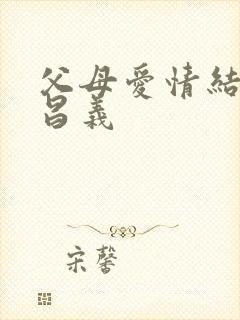 父母愛情結
昌義
宋馨